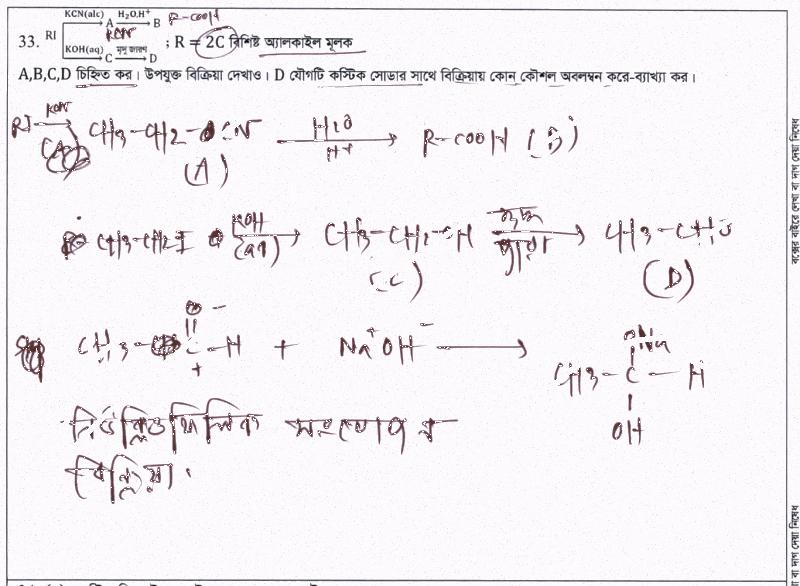 KCN(alc) A H₂O,H⁺ B R-COOH
33. RI KCN ; R = 2C বিশিষ্ট অ্যালকাইল মূলক
KOH(aq) C মৃদু জারণ D
A,B,C,D চিহ্নিত কর। উপযুক্ত বিক্রিয়া দেখাও। D যৌগটি কস্টিক সোডার সাথে বিক্রিয়ায় কোন্ কৌশল অবলম্বন করে-ব্যাখ্যা কর।
RI KCN CH3-CH2-CN H2O H+ R-COOH (B)
(A)
CH3-CH2I KOH (aq) CH3-CH2-OH মৃদু জারণ CH3-CHO
(C) (D)
CH3-C-H + Na⁺OH⁻
CH3-C-H
OH
নিউক্লিওফিলিক সংযোজন
বিক্রিয়া।
বক্সের বাইরে লেখা বা দাগ দেয়া নিষেধ
বা দাগ দেয়া নিষেধ